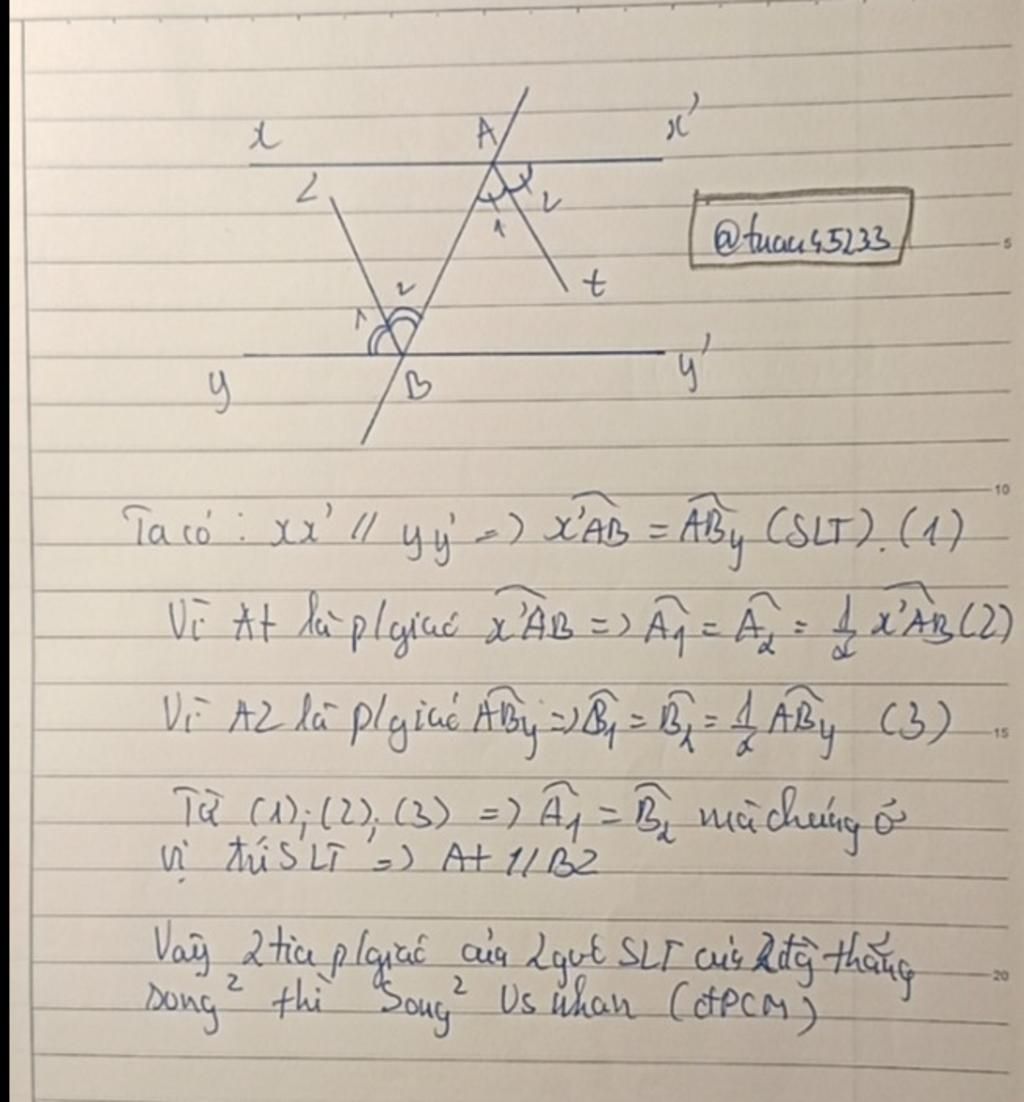 x A x'
z 1 2
@tuan45233
5
t
1 2
y B y'
10
Ta có : xx' // yy' => x'AB = ABy (SLT). (1)
Vì At là p/giác x'AB => A1 = A2 = 1/2 x'AB (2)
Vì Az là p/giác ABy => B1 = B2 = 1/2 ABy (3)
15
Từ (1); (2); (3) => A1 = B2 mà chúng ở
vị trí SLT => At // Bz
Vậy 2 tia p/giác của 2 góc SLT của 2 đg thẳng
20
song² thì song² vs nhau (đPCM)